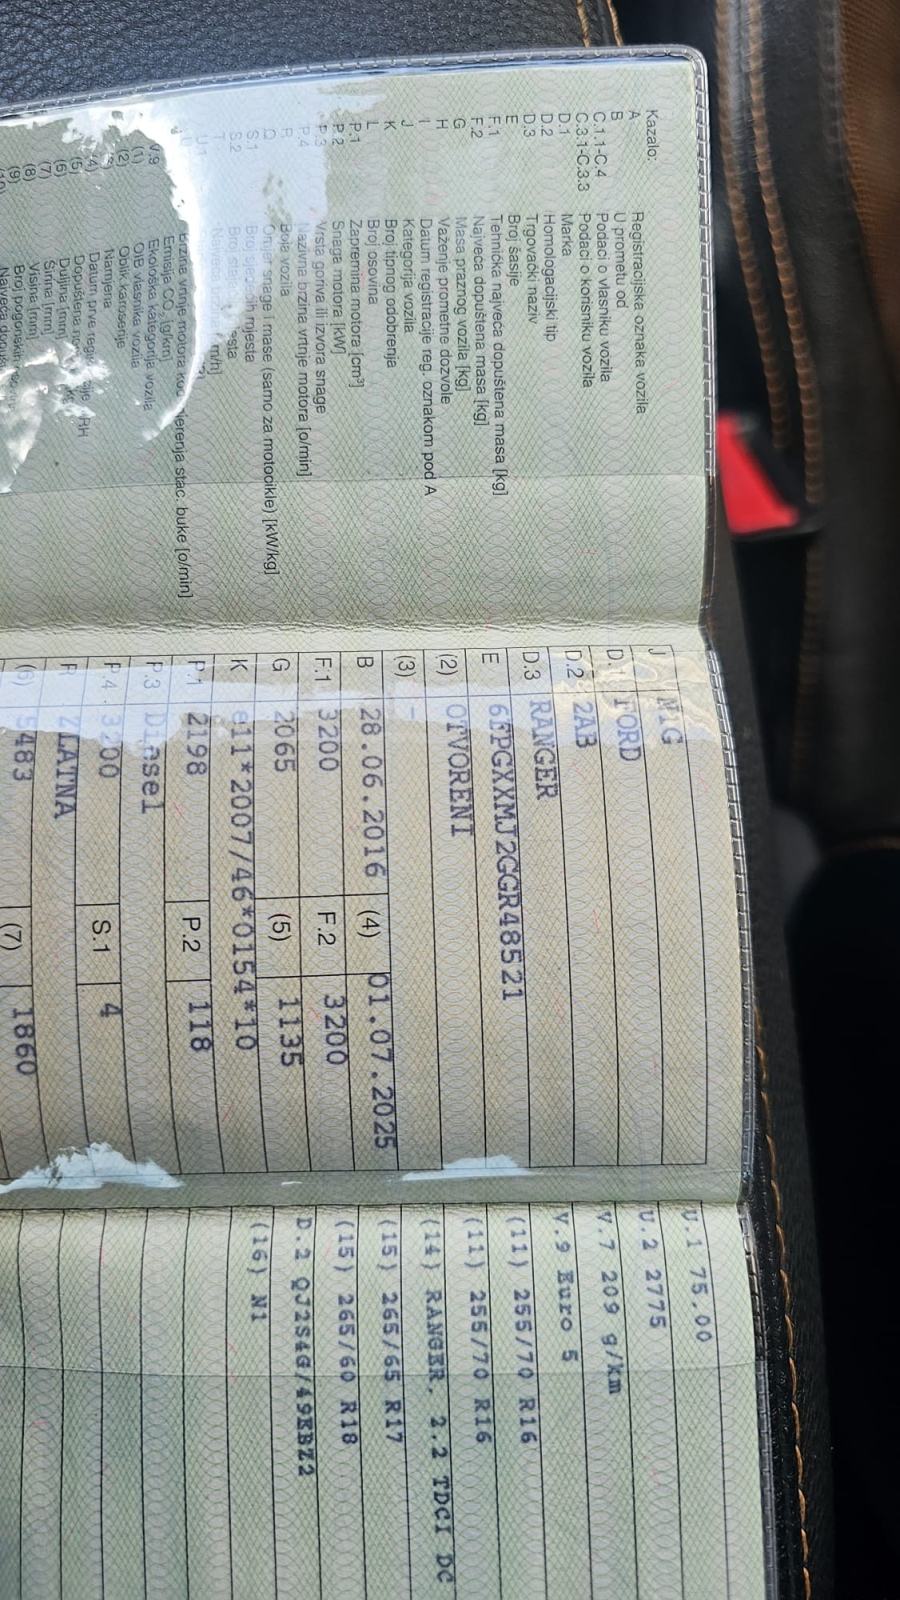 Kazalo:
A Registracijska oznaka vozila
B U prometu od
C.1.1-C.4 Podaci o vlasniku vozila
C.3.1-C.3.3 Podaci o korisniku vozila
D.1 Marka
D.2 Homologacijski tip
D.3 Trgovački naziv
E Broj šasije
F.1 Tehnička najveća dopuštena masa [kg]
F.2 Najveća dopuštena masa [kg]
G Masa praznog vozila [kg]
H Važenje prometne dozvole
I Datum registracije reg. oznakom pod A
J Kategorija vozila
K Broj tipnog odobrenja
L Broj osovina
P.1 Zapremina motora [cm³]
P.2 Snaga motora [kW]
P.3 Vrsta goriva ili izvora snage
P.4 Nazivna brzina vrtnje motora [o/min]
R Boja vozila
Q Omjer snage i mase (samo za motocikle) [kW/kg]
S.1 Broj sjedećih mjesta
S.2 Broj
T
U.1
Brzina vrtnje motora kod mjerenja stac. buke [o/min]
Emisija CO₂ [g/km]
V.9 Ekološka kategorija vozila
(1) OIB vlasnika vozila
(2) Oblik karoserije
Namjena
(4) Datum prve
(5) Dopuštena
(6) Duljina [mm]
(7) Širina [mm]
(8) Visina [mm]
(9) Broj pogonskih
J N1G
D.1 FORD
D.2 2AB
D.3 RANGER
E 6FPGXXMJ2GGR48521
(2) OTVORENI
(3) -
B 28.06.2016 (4) 01.07.2025
F.1 3200 F.2 3200
G 2065 (5) 1135
K e11*2007/46*0154*10
P.1 2198 P.2 118
P.3 Diesel
P.4 3200 S.1 4
R ZLATNA
(6) 5483 (7) 1860
U.1 75.00
U.2 2775
V.7 209 g/km
V.9 Euro 5
(11) 255/70 R16
(11) 255/70 R16
(14) RANGER. 2.2 TDCI DC
(15) 265/65 R17
(15) 265/60 R18
D.2 QJ2S4G/49EBZ2
(16) N1